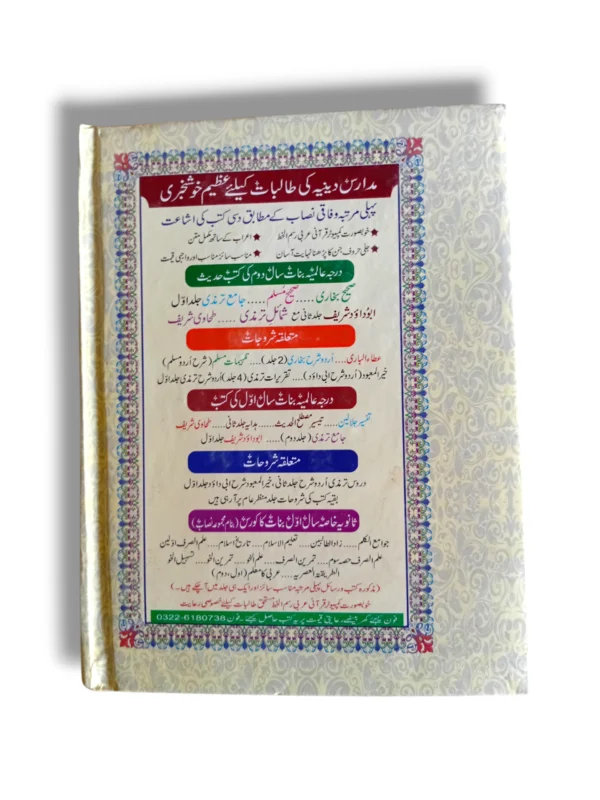 مدارس دینیہ کی طالبات کیلئے عظیم خوشخبری
پہلی مرتبہ وفاقی نصاب کے مطابق درسی کتب کی اشاعت
★ خوبصورت کمپیوٹر قرآنی عربی رسم الخط ★ اعراب کے ساتھ مکمل متن
★ جلی حروف جن کا پڑھنا نہایت آسان ★ مناسب سائز مناسب اور واجبی قیمت
درجہ عالمیہ بنات سال دوم کی کتب حدیث
صحیح بخاری ..... صحیح مسلم ..... جامع ترمذی جلد اوّل
ابوداؤد شریف جلد ثانی مع شمائل ترمذی ..... طحاوی شریف
متعلقہ شروحات
عطاء الباری .... اُردو شرح بخاری (2 جلد) .... تفہیمات مسلم (شرح اُردو مسلم)
خیر المعبود (اُردو شرح ابی داؤد) .... تقریرات ترمذی (4 جلد) اُردو شرح ترمذی جلد اوّل
درجہ عالمیہ بنات سال اوّل کی کتب
تفسیر جلالین ..... تیسیر مصطلح الحدیث ..... ہدایہ جلد ثانی ..... طحاوی شریف
جامع ترمذی (جلد دوم) ..... ابوداؤد شریف جلد اوّل
متعلقہ شروحات
دروس ترمذی اُردو شرح جلد ثانی، خیر المعبود شرح ابی داؤد جلد اوّل
بقیہ کتب کی شروحات جلد منظر عام پر آ رہی ہیں
ثانویہ خاصہ سال اوّل بنات کا کورس (بنام مجموعہ نصاب)
جوامع الکلم .... زاد الطالبین .... تعلیم الاسلام .... تاریخ اسلام .... علم الصرف اوّلین
علم الصرف حصہ سوم .... تمرین الصرف .... علم النحو .... تمرین النحو .... تسہیل النحو
الطریقۃ العصریہ .... عربی کا معلم (اول، دوم)
(مذکورہ کتب ورسائل پہلی مرتبہ مناسب سائز اور ایک ہی جلد میں آ چکے ہیں۔)
خوبصورت کمپیوٹر قرآنی عربی رسم الخط مستحق طالبات کیلئے خصوصی رعایت
فون کیجئے گھر بیٹھے۔ رعایتی قیمت پر یہ کتب حاصل کیجئے۔ فون 0322-6180738